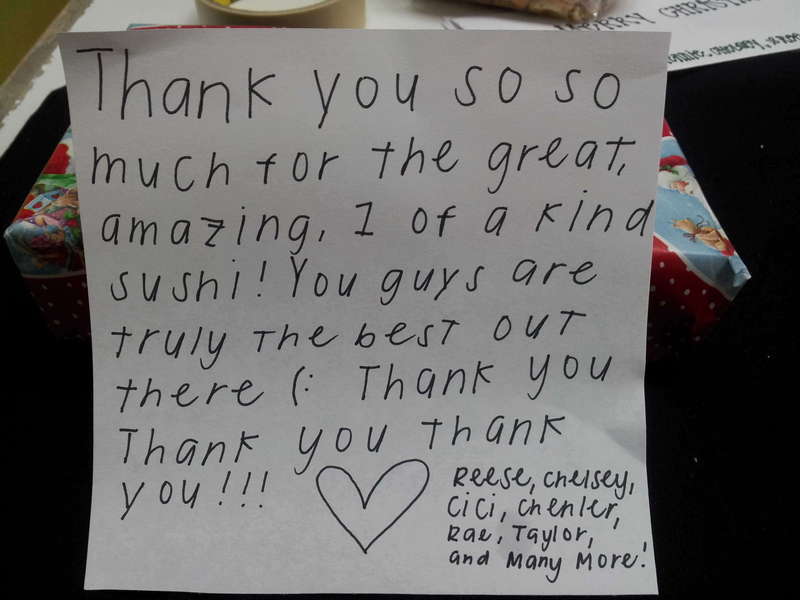 MERRY CHRIST
Thank you so so
much for the great,
amazing, 1 of a kind
sushi! You guys are
truly the best out
there (: Thank you
Thank you thank
you!!!
Reese, Chelsey,
CiCi, Chenler,
Rae, Taylor,
and Many More!